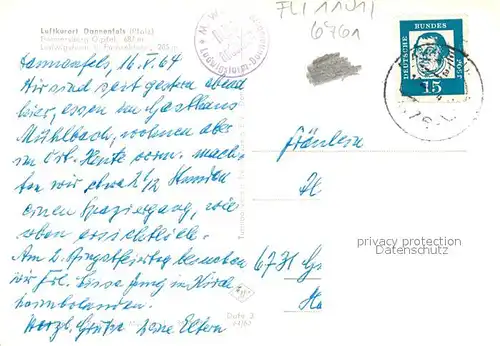 Luftkurort Dannenfels (Pfalz)
Donnersberg Gipfel, 687 m
FLI 11011
6761
DEUTSCHE BUNDES POST
15
Dannenfels, 16.V.64
Wir sind seit gestern abend
hier, essen im Gasthaus
Mühlbach, wohnen aber
im Ort. Heute vorm. mach-
ten wir etwa 2 1/2 Stunden
einen Spaziergang, wie
oben ersichtlich.
Am 2. Pfingstfeiertag besuchten
wir Frl. Jung in Kirch-
heimbolanden.
Herzl. Grüße Deine Eltern
Fräulein
H
6731
privacy protection
Datenschutz